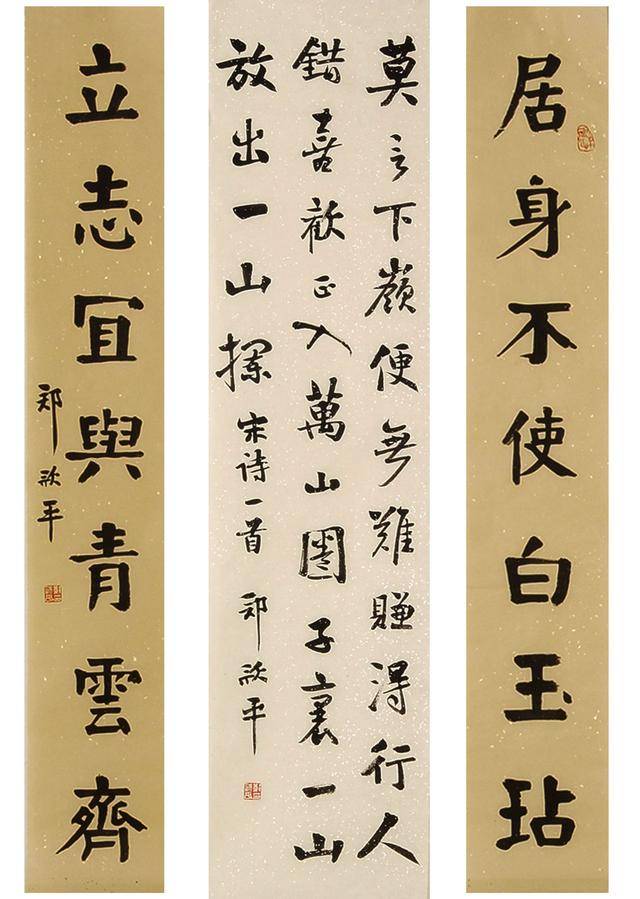 居身不使白玉玷
莫言下嶺便無難賺得行人
錯喜歡正入萬山圈子裏一山
放出一山攔 宋诗一首 郑平
立志冝與青雲齊
郑平